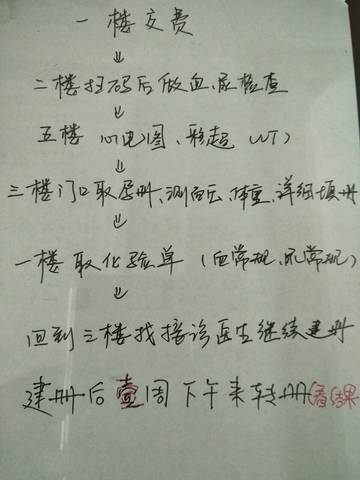 一楼交费
↓
二楼扫码后做血、尿检查
↓
五楼 心电图、彩超 (NT)
↓
三楼门口取孕册、测血压、体重、详细填册
↓
一楼 取化验单 (血常规、尿常规)
↓
回到三楼找接诊医生继续建册
建册后壹周下午来转册(看结果